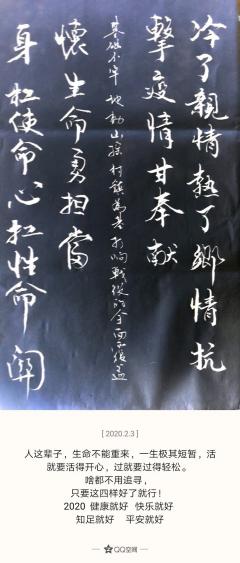 冷了親情熱了鄉情抗
擊疫情甘奉献
基础不牢 地動山摇 村鎮為基打响戰役的全面覆盖
懷生命勇担當
身扛使命心扛性命關
[2020.2.3]
人这辈子，生命不能重来，一生极其短暂，活
就要活得开心，过就要过得轻松。
啥都不用追寻，
只要这四样好了就行！
2020 健康就好 快乐就好
知足就好 平安就好
QQ空间